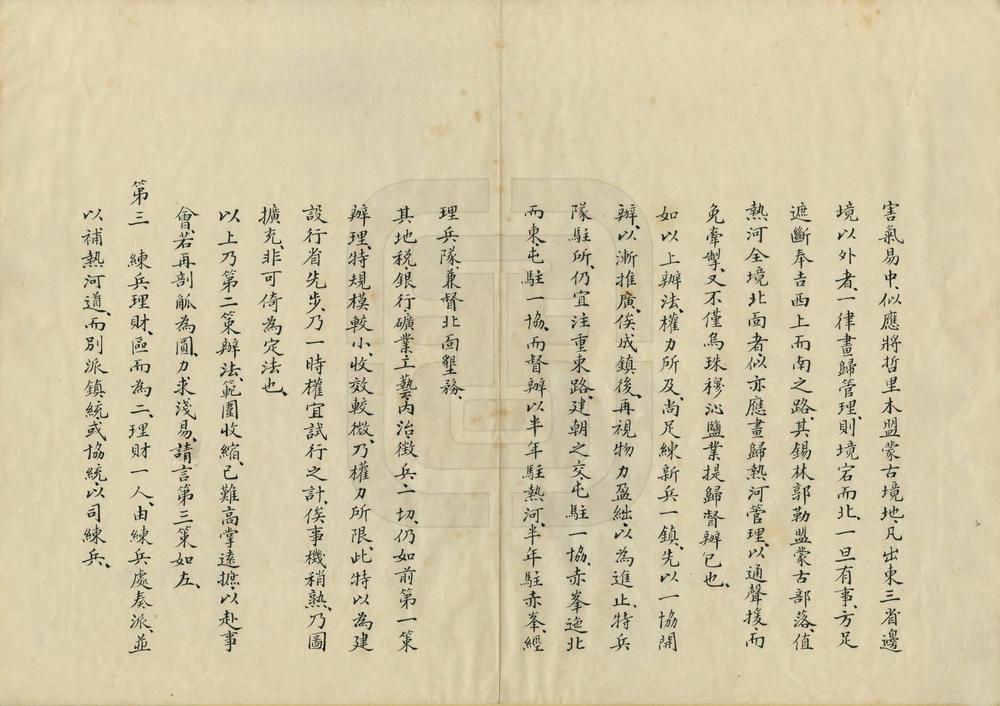 害氣易中、似應將哲里木盟蒙古境地、凡出東三省邊
境以外者、一律畫歸管理、則境宕而北、一旦有事、方足
遮斷奉吉西上而南之路、其錫林郭勒盟蒙古部落、值
熱河全境北面者、似亦應畫歸熱河管理、以通聲援、而
免牽掣、又不僅烏珠穆沁鹽業提歸督辦已也、
如以上辦法、權力所及、尚足練新兵一鎮、先以一協開
辦、以漸推廣、俟成鎮後、再視物力盈絀、以為進止、特兵
隊駐所、仍宜注重東路、建朝之交、屯駐一協、赤峯迤北
而東、屯駐一協、而督辦以半年駐熱河、半年駐赤峯、經
理兵隊兼督北面墾務、
其地稅銀行、礦業工藝、內治徵兵、一切仍如前第一策
辦理、特規模較小、收效較微、乃權力所限、此特以為建
設行省先步、乃一時權宜試行之計、俟事機稍熟、乃圖
擴充、非可倚為定法也、
以上乃第二策辦法、範圍收縮、已難高掌遠摭、以赴事
會、若再剖觚為圓、力求淺易、請言第三策如左、
第三　練兵理財、區而為二、理財一人、由練兵處奏派、並
以補熱河道、而別派鎮統或協統以司練兵、